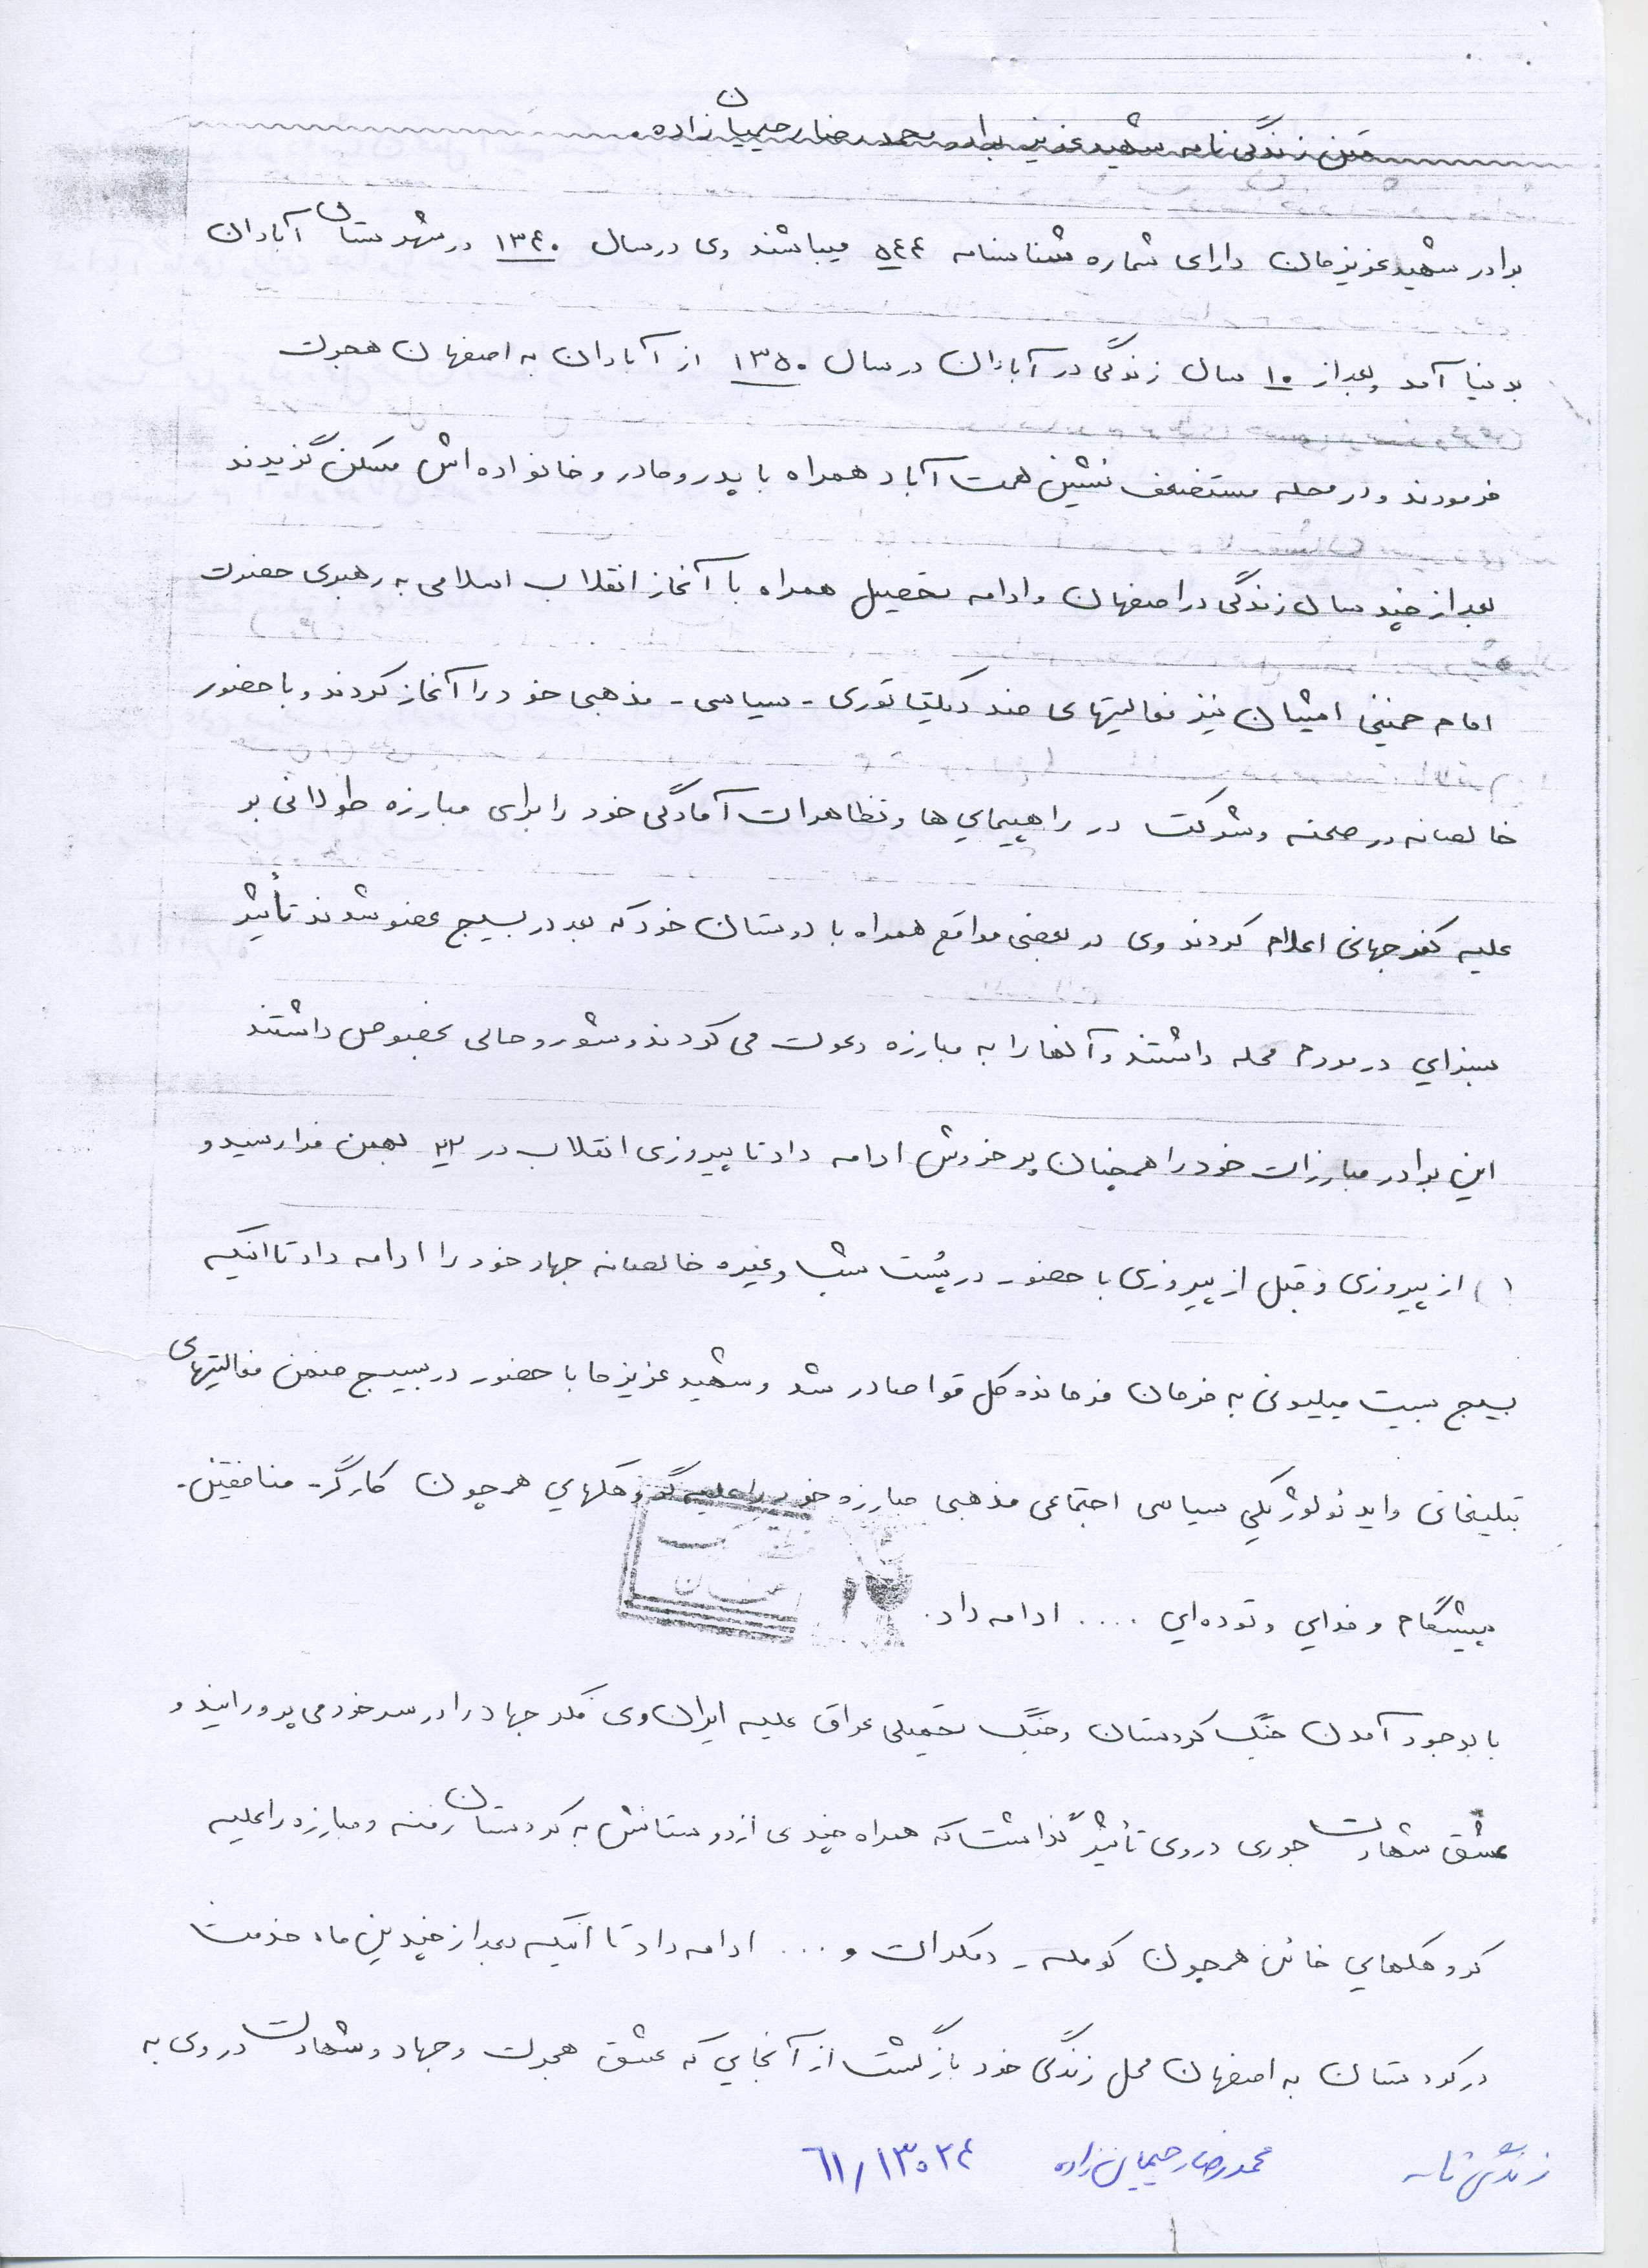 متن زندگی نامه شهید عزیز برادر محمد رضا رحیمیان زاده.
برادر شهید عزیزمان دارای شماره شناسنامه ۵۴۴ میباشند وی در سال ۱۳۴۰ در شهرستان آبادان
بدنیا آمد بعد از ۱۰ سال زندگی در آبادان در سال ۱۳۵۰ از آبادان به اصفهان هجرت
فرمودند و در محله مستضعف نشین همت آباد همراه با پدر و مادر و خانواده اش مسکن گزیدند
بعد از چند سال زندگی در اصفهان و ادامه تحصیل همراه با آغاز انقلاب اسلامی به رهبری حضرت
امام خمینی ایشان نیز فعالیتهای ضد دیکتاتوری - سیاسی - مذهبی خود را آغاز کردند و با حضور
خالصانه در صحنه و شرکت در راهپیمایی ها و تظاهرات آمادگی خود را برای مبارزه طولانی بر
علیه کفر جهانی اعلام کردند وی در بعضی مواقع همراه با دوستان خود که بعد در بسیج عضو شدند تأثیر
بسزایی در مردم محله داشتند و آنها را به مبارزه دعوت می کردند و شور و حالی بخصوص داشتند
این برادر مبارزات خود را همچنان پر خروش ادامه داد تا پیروزی انقلاب در ۲۲ بهمن فرا رسید و
۱) از پیروزی و قبل از پیروزی با حضور در پُست شب و غیره خالصانه جهاد خود را ادامه داد تا اینکه
بسیج بیست میلیونی به فرمان فرمانده کل قوا صادر شد و شهید عزیز ما با حضور در بسیج ضمن فعالیتهای
تبلیغاتی و ایدئولوژیکی سیاسی اجتماعی مذهبی مبارزه خود را علیه گروهکهایی همچون کارگر - منافقین -
پیشگام و فدایی و توده‌ایی .... ادامه داد.
با بوجود آمدن جنگ کردستان و جنگ تحمیلی عراق علیه ایران وی فکر جهاد را در سر خود می پرورانید و
عشق شهادت جوری در وی تأثیر گذاشت که همراه چندی از دوستانش به کردستان رفته و مبارزه را علیه
گروهکهایی خائن همچون کومله - دمکرات و ... ادامه داد تا اینکه بعد از چندین ماه خدمت
در کردستان به اصفهان محل زندگی خود بازگشت از آنجایی که عشق هجرت و جهاد و شهادت در وی به
زندگی نامه محمدرضا رحیمیان زاده ۶۱/۱۳۰۲۴